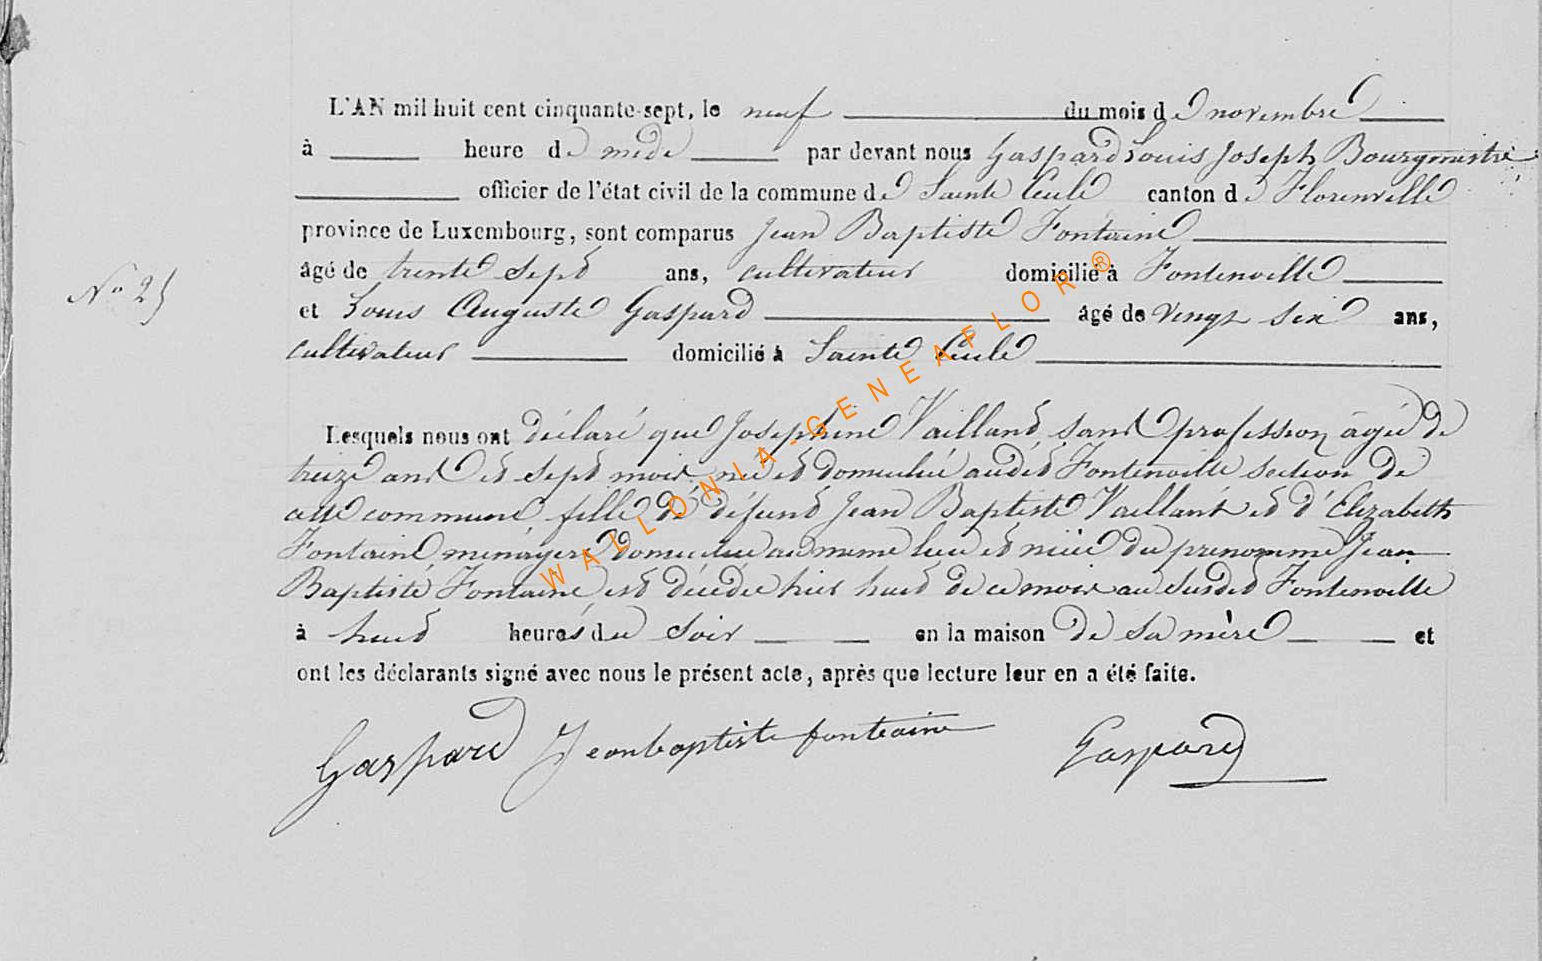 L'AN mil huit cent cinquante-sept, le neuf du mois de novembre
à heure de midi par devant nous Gaspard Louis Joseph Bourgmestre
officier de l'état civil de la commune de Sainte Cecile canton de Florenville
province de Luxembourg, sont comparus Jean Baptiste Fontaine
âgé de trente sept ans, cultivateur domicilié à Fontenoille
et Louis Auguste Gaspard âgé de vingt six ans,
cultivateur domicilié à Sainte Cecile
N° 25
Lesquels nous ont déclaré que Josephine Vaillant, sans profession âgée de
treize ans et sept mois, née et domiciliée audit Fontenoille section de
cette commune fille de défunt Jean Baptiste Vaillant et d'Elizabeth
Fontaine ménagère domiciliée au même lieu et nièce du prénommé Jean
Baptiste Fontaine est décédée hier huit de ce mois au susdit Fontenoille
à huit heures du soir en la maison de sa mère et
ont les déclarants signé avec nous le présent acte, après que lecture leur en a été faite.
Gaspard Jeanbaptiste fontaine Gaspard
WALLONIA-GENEAFLOR®